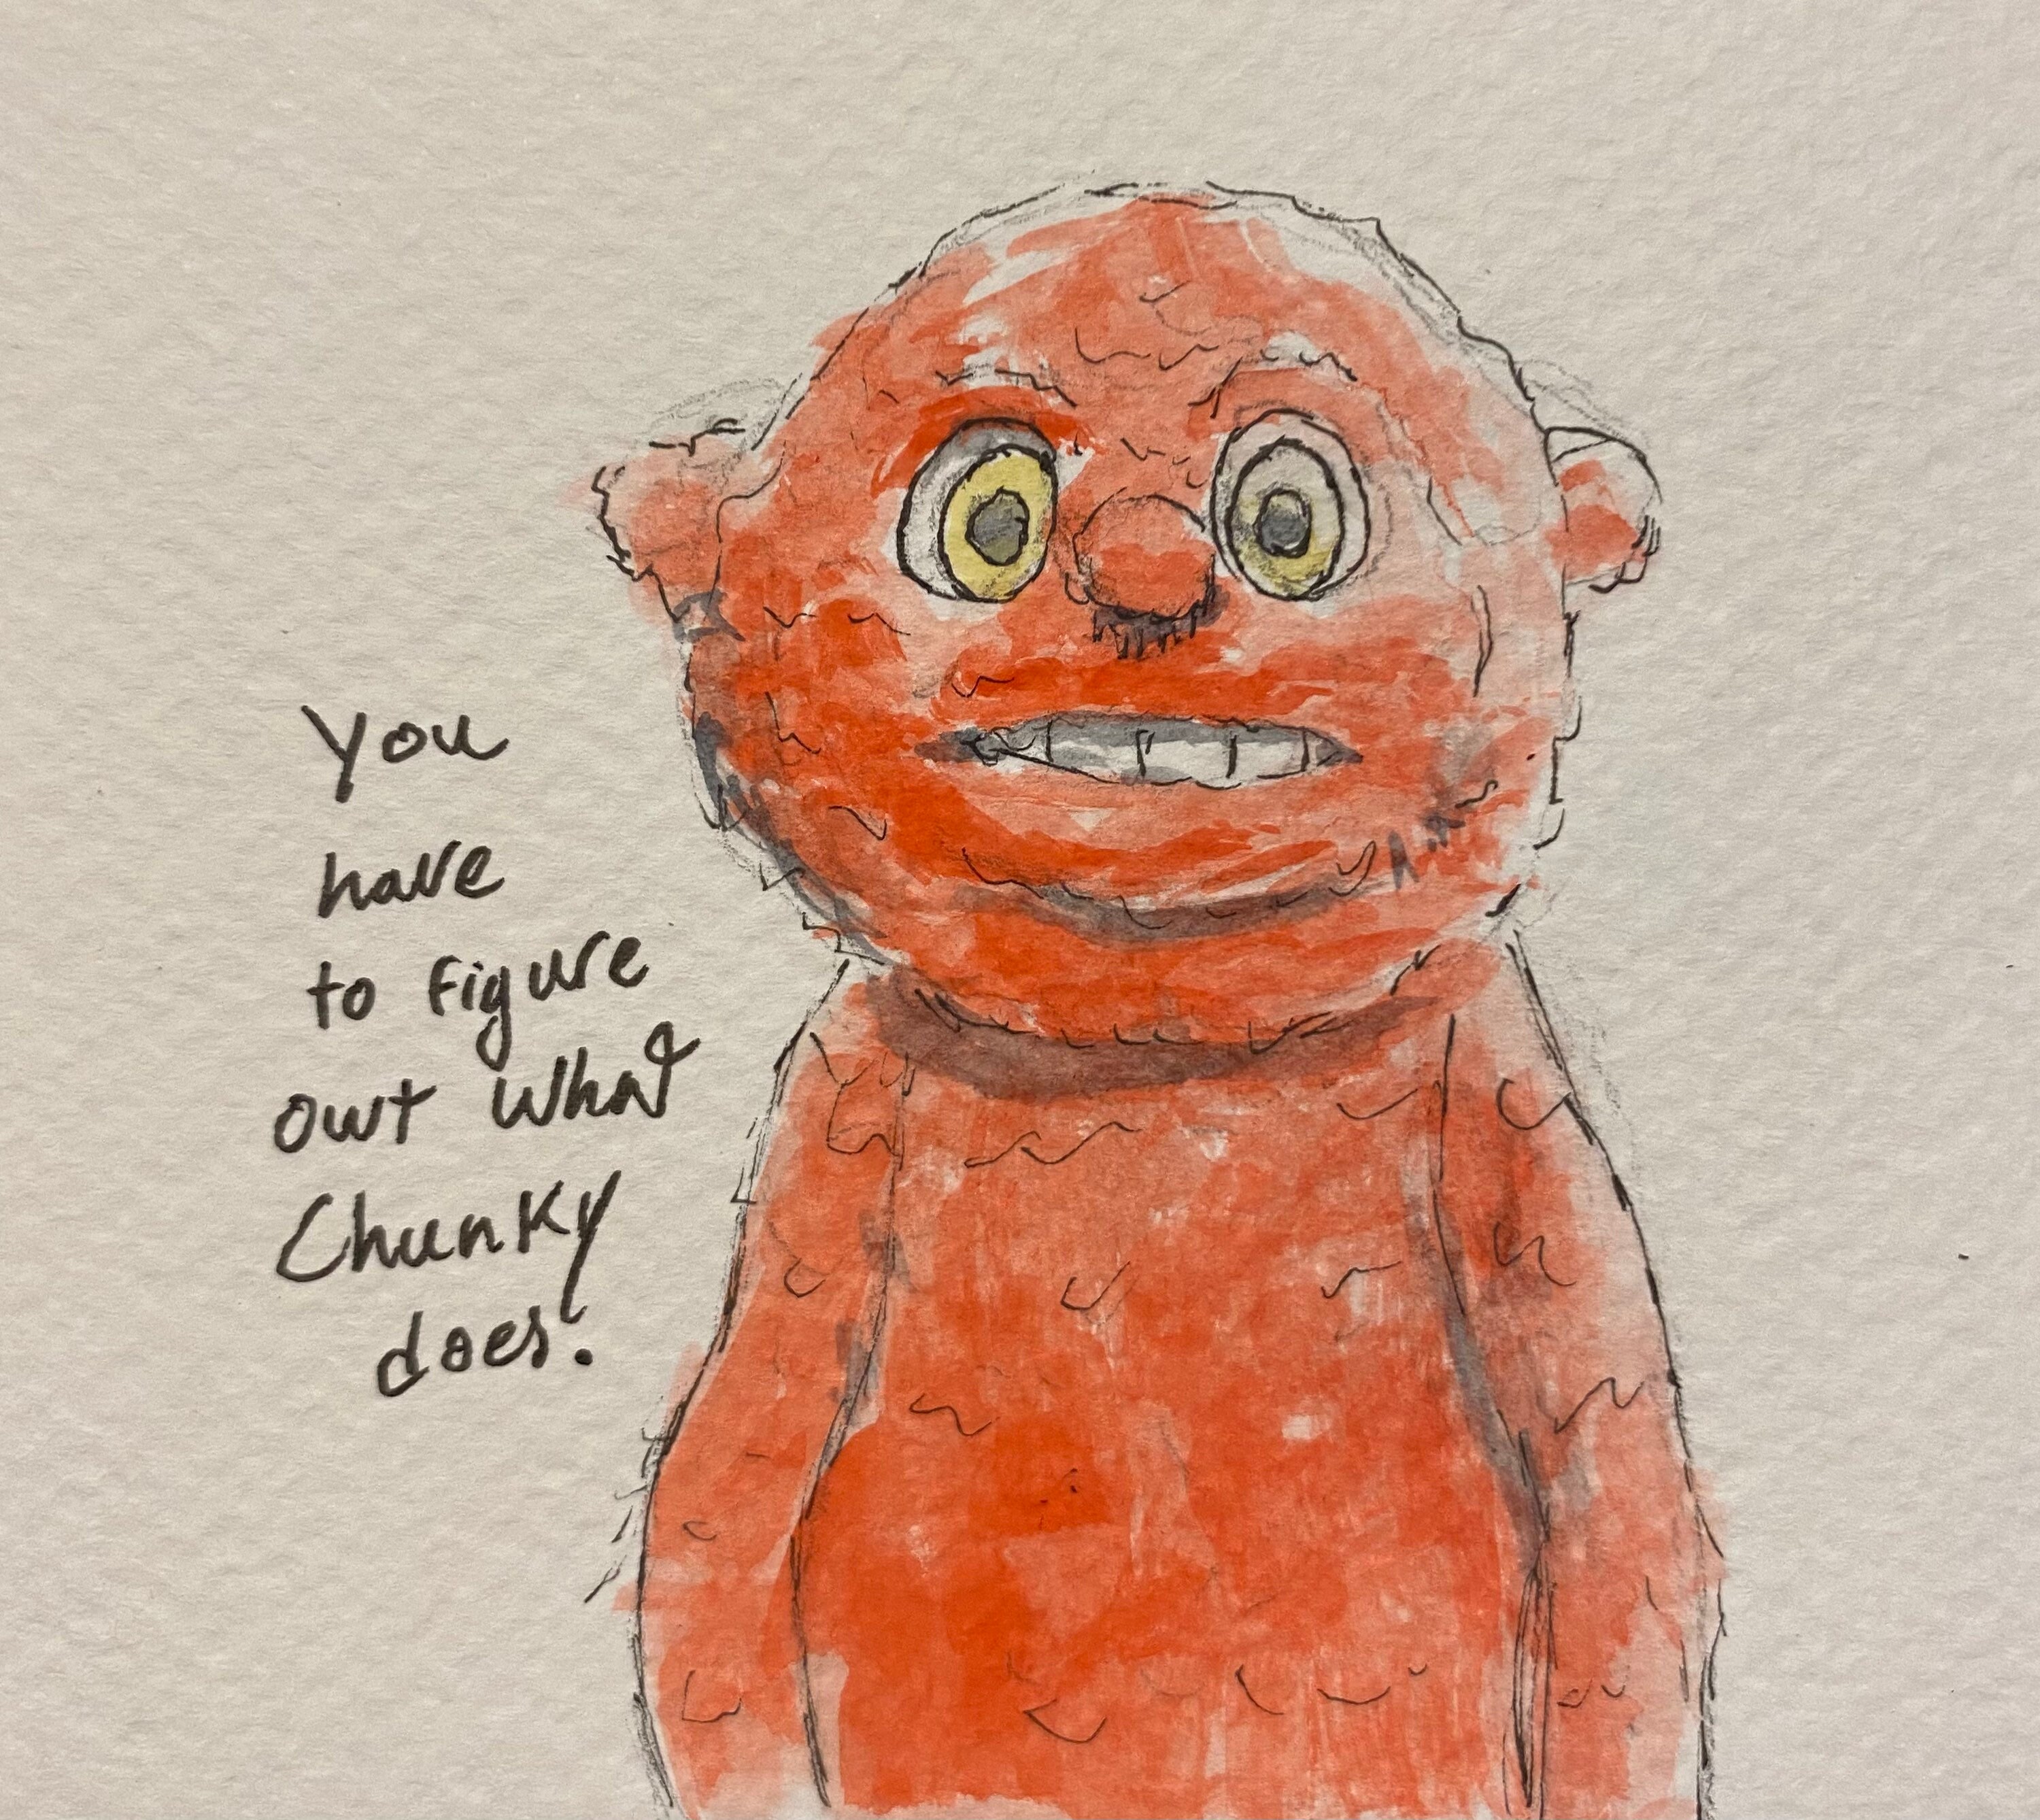 You
have
to figure
out what
Chunky
does!